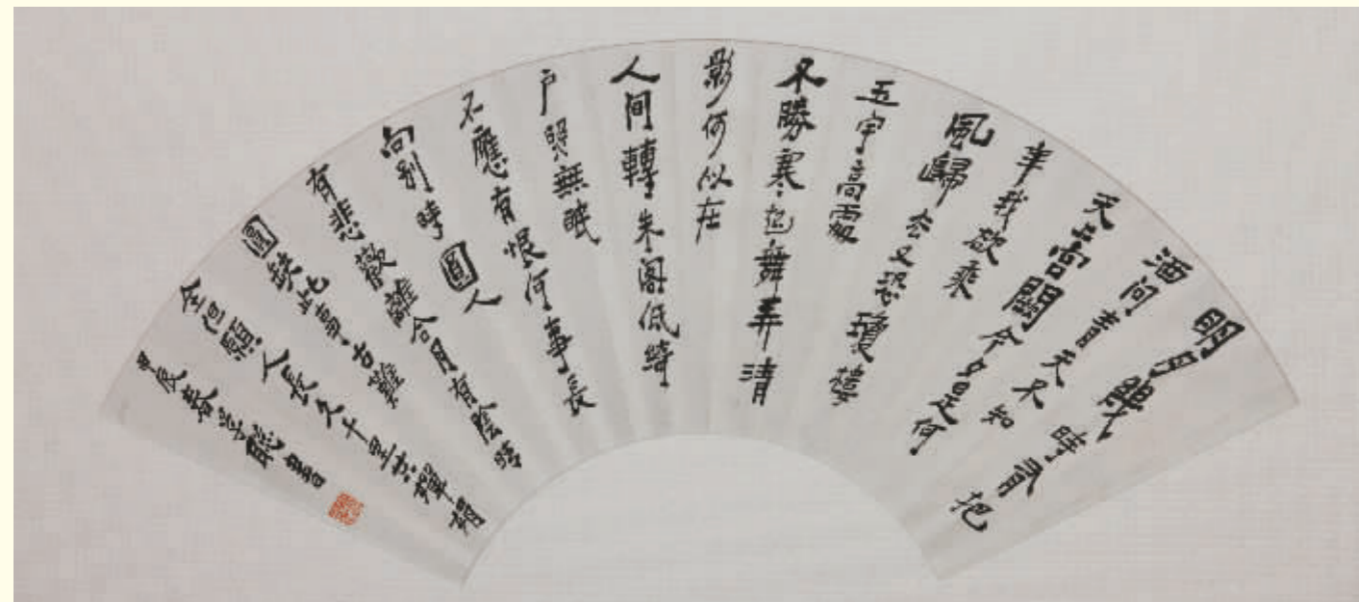 明月幾時有把
酒问青天不知
天上宫闕今夕是何
年我欲乘
風歸去又恐瓊樓
玉宇高處
不勝寒起舞弄清
影何似在
人间轉朱阁低綺
户照無眠
不應有恨何事長
向别時圓人
有悲歡離合月有陰晴
圓缺此事古難
全但願人長久千里共嬋娟
甲辰春書